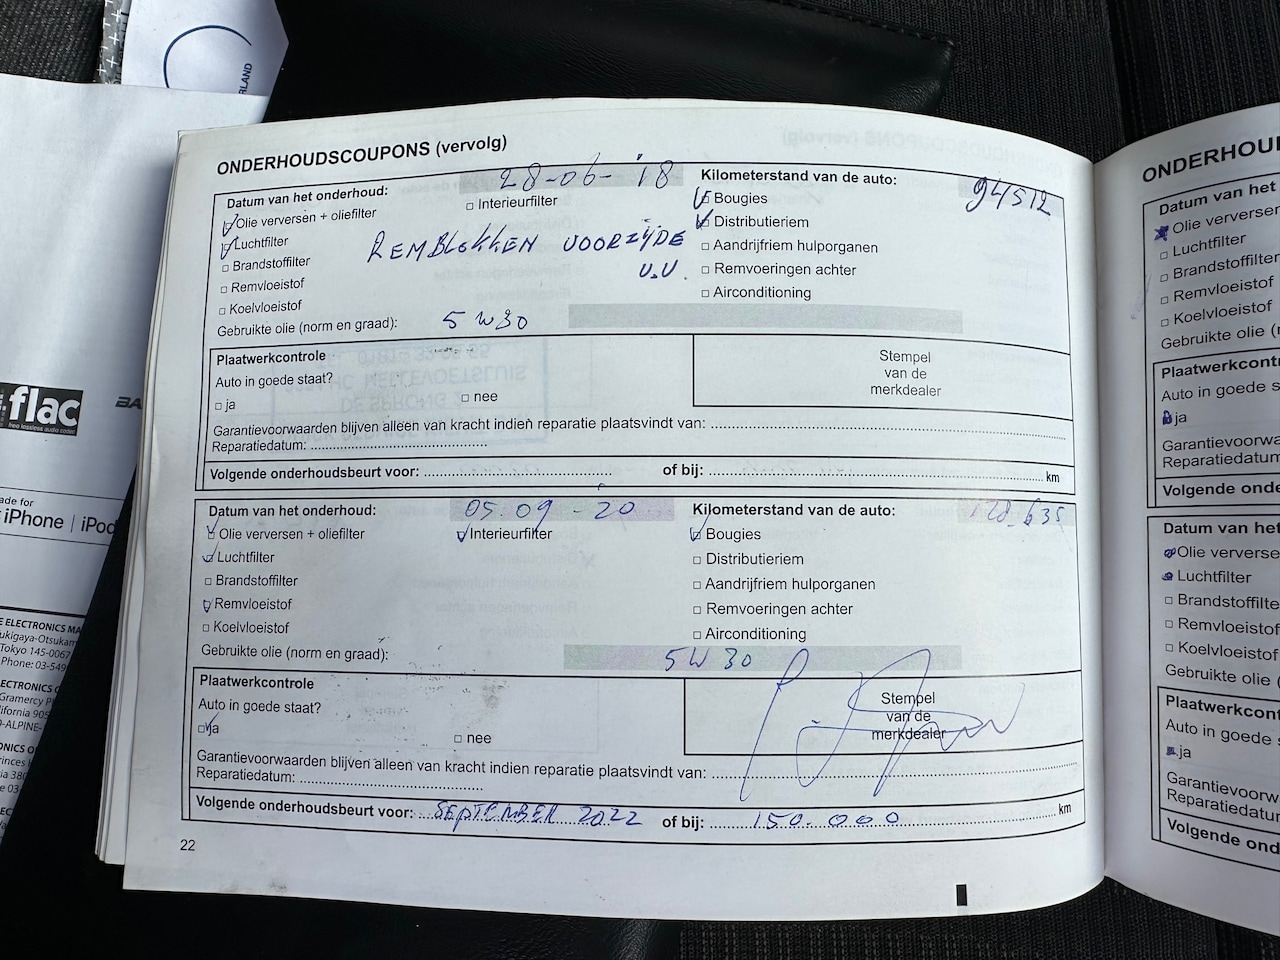 RLAND
flac
free lossless audio codec
BA
ade for
iPhone | iPod
E ELECTRONICS MA
ukigaya-Otsukam
Tokyo 145-0067
Phone: 03-549
ECTRONICS
Gramercy Pl
lifornia 905
D-ALPINE-
ONICS O
rinces H
ia 380
e 03-
ONDERHOUDSCOUPONS (vervolg)
Datum van het onderhoud: 28-06-'18 Kilometerstand van de auto: 94512
Olie verversen + oliefilter Interieurfilter Bougies
Luchtfilter Distributieriem
REMBLOKKEN VOORZIJDE
Brandstoffilter Aandrijfriem hulporganen
V.V.
Remvloeistof Remvoeringen achter
Koelvloeistof Airconditioning
Gebruikte olie (norm en graad): 5W30
Plaatwerkcontrole
Auto in goede staat?
ja nee
Stempel
van de
merkdealer
Garantievoorwaarden blijven alleen van kracht indien reparatie plaatsvindt van:
Reparatiedatum:
Volgende onderhoudsbeurt voor: of bij: km
Datum van het onderhoud: 05.09-20 Kilometerstand van de auto: 128.635
Olie verversen + oliefilter Interieurfilter Bougies
Luchtfilter Distributieriem
Brandstoffilter Aandrijfriem hulporganen
Remvloeistof Remvoeringen achter
Koelvloeistof Airconditioning
Gebruikte olie (norm en graad): 5W30
Plaatwerkcontrole
Auto in goede staat?
ja nee
Stempel
van de
merkdealer
Garantievoorwaarden blijven alleen van kracht indien reparatie plaatsvindt van:
Reparatiedatum:
Volgende onderhoudsbeurt voor: SEPTEMBER 2022 of bij: 150.000 km
22
ONDERHOU
Datum van het
Olie verversen
Luchtfilter
Brandstoffilter
Remvloeistof
Koelvloeistof
Gebruikte olie (n
Plaatwerkcontr
Auto in goede s
ja
Garantievoorwa
Reparatiedatum
Volgende onde
Datum van het
Olie ververse
Luchtfilter
Brandstoffilte
Remvloeistof
Koelvloeistof
Gebruikte olie (
Plaatwerkcont
Auto in goede s
ja
Garantievoorw
Reparatiedatu
Volgende ond